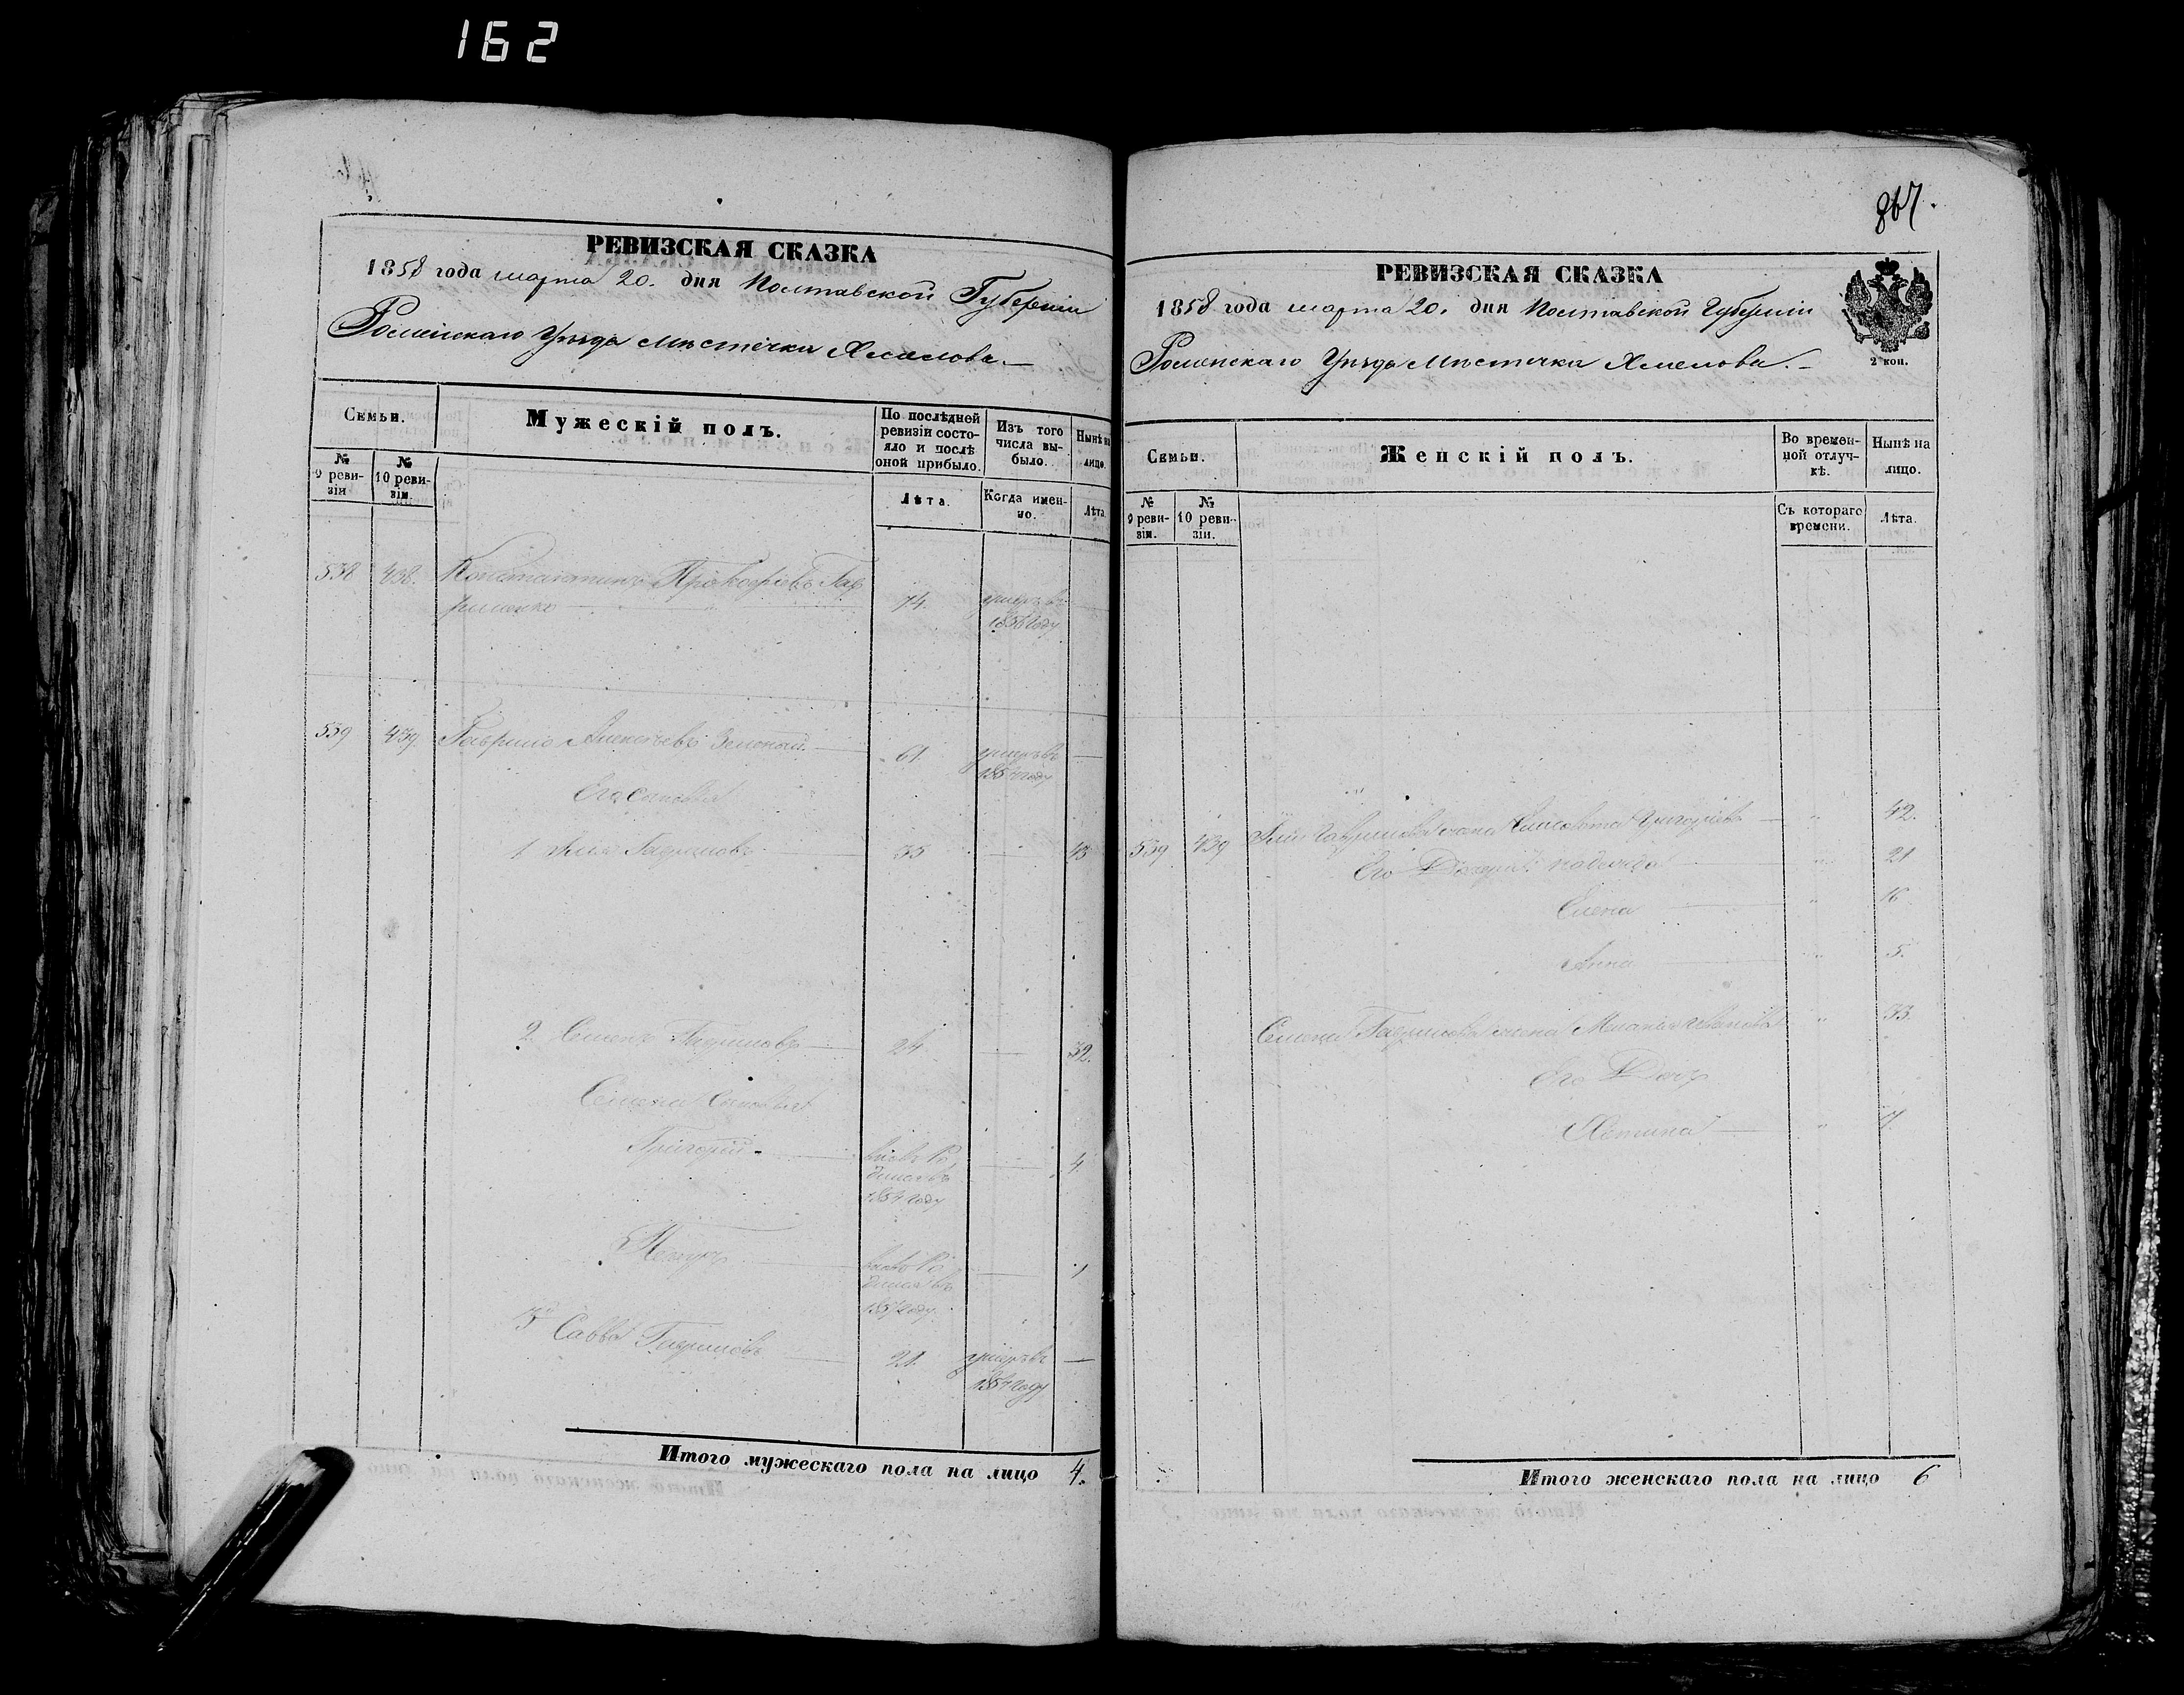 162
РЕВИЗСКАЯ СКАЗКА
1858 года марта 20. дня Полтавской Губерніи
Роменскаго Уѣзда Мѣстечка Хмелова.
Семьи.
Мужескій полъ.
По послѣдней ревизіи состояло и послѣ оной прибыло.
Изъ того числа выбыло.
Нынѣ на лицо.
№ 9 ревизіи
№ 10 ревизіи.
Лѣта.
Когда именно.
Лѣта.
538 438. Константинъ Прокофьевъ
74. умеръ въ
1856 году
539 439. Гаврило Алексѣевъ Зеленый 61 умеръ въ
185 году
Его Сыновья
1 Илья Гавриловъ 35 43
2 Семенъ Гавриловъ 24 32.
Семена Сыновья
Григорій вновь Ро 4
дился въ
1854 году
вновь Ро 1
дился въ
1857 году
3 Савва Гавриловъ 21. умеръ въ
1854 году
Итого мужескаго пола на лицо 4.
867.
РЕВИЗСКАЯ СКАЗКА
1858 года марта 20. дня Полтавской Губерніи
Роменскаго Уѣзда Мѣстечка Хмелова.
2 коп.
Семьи.
Женскій полъ.
Во временной отлучкѣ.
Нынѣ на лицо.
№ 9 ревизіи.
№ 10 ревизіи.
Съ котораго времени.
Лѣта.
539 439 Ильи Гаврилова жена Елисавета Григорьева " 42.
Его Дочери: Надежда " 21
Елена " 16
Анна " 5.
Семена Гаврилова жена Меланія Иванова " 33.
Его Дочь
" 7
Итого женскаго пола на лицо 6